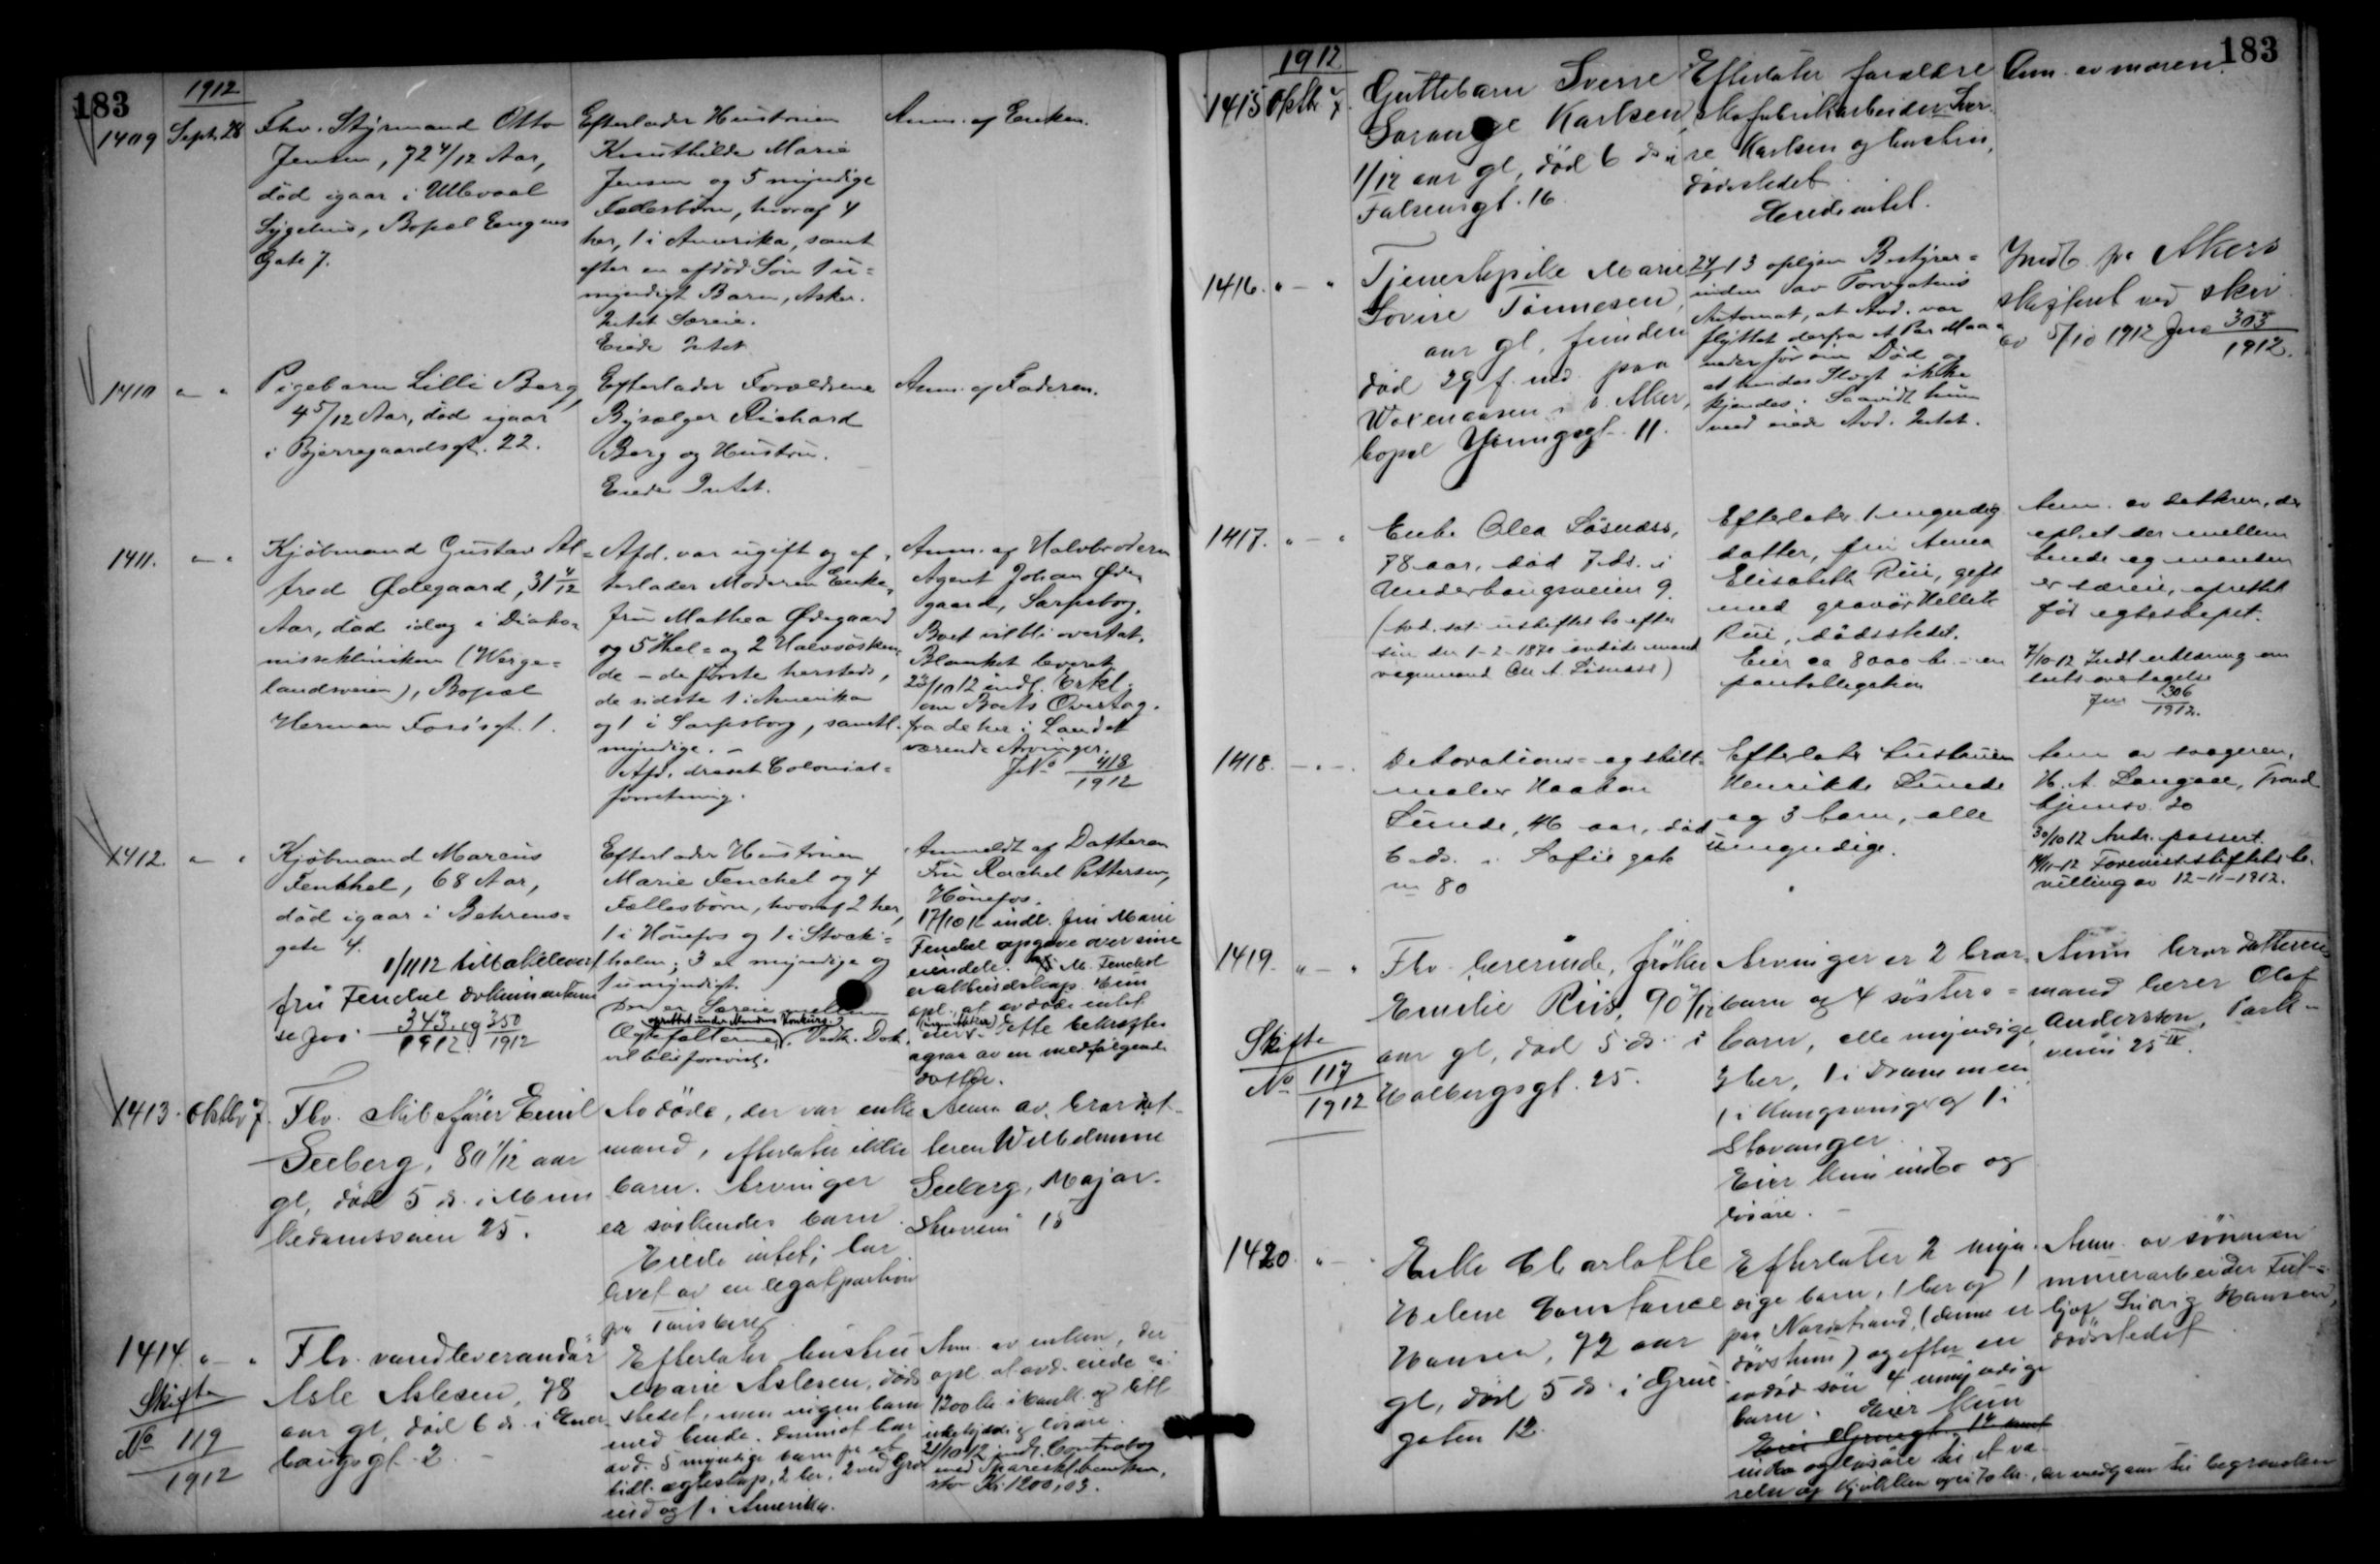 183
1912
1409 Sept. 28
Fhv. Styrmand Otto
Jensen, 72 4/12 Aar,
død igaar i Ullevaal
Sygehus, Bopæl Eugenes
Gate 7.
Efterlader Hustruen
Knuthilde Marie
Jensen og 5 myndige
Fællesbørn, hvoraf 4
her, 1 i Amerika, samt
efter en afdød Søn 1 u=
myndigt Barn, Asker.
Intet Særeie.
Eiede Intet.
Anm. af Enken.
1410 " — "
Pigebarn Lilli Berg,
4 5/12 Aar, død igaar
i Bjerregaardsgt. 22.
Efterlader Forældrene
Bysælger Richard
Berg og Hustru.
Eiede Intet.
Anm. af Faderen.
1411. " — "
Kjøbmand Gustav Al=
fred Ødegaard, 31 4/12
Aar, død idag i Diako=
nisseklinikken (Werge=
landsveien), Bopæl
Herman Foss's gt. 1.
Afd. var ugift og ef=
terlader Moderen Enke=
fru Mathea Ødegaard
og 5 Hel= og 2 Halvsøsken=
de – de første hersteds,
de sidste 1 i Amerika
og 1 i Sarpsborg, samtl.
myndige. –
Afd. drev et Colonial=
forretning.
Anm. af Halvbroderen
Agent Johan Øde=
gaard, Sarpsborg.
Boet vil bli overtat.
Blanket leveret.
23/10 12 indl. Erkl.
om Boets Overtag.
fra de her i Landet
værende Arvinger.
JNo 418/1912
1412. " — "
Kjøbmand Marcus
Fenchel, 68 Aar,
død igaar i Behrens=
gate 4.
1/11 12 tilbakelevert
fru Fenchel dokumenterne
se Jno 343 og 350
1912. 1912
Efterlader Hustruen
Marie Fenchel og 4
Fællesbørn, hvoraf 2 her,
1 i Hønefos og 1 i Stock=
holm; 3 er myndige og
1 umyndigt.
Der er Særeie mellem
oprettet under Mandens Konkurs.
Ægtefællerne. Vedk. Dok.
vil bli forevist.
Anmeldt af Datteren
Fru Rachel Pettersen,
Hønefos.
17/10 12 indl. fru Marie
Fenchel opgave over sine
eiendele. M. Fenchel
opl. at avdøde intet
eiet. Dette bekræftes
ogsaa av en medfølgende
datter.
1413. Oktbr 7.
Fhv. skibsfører Emil
Seeberg, 80 1/12 aar
gl, død 5 ds. i Munke
damsveien 25.
Avdøde, der var enke
mand, efterlater ikke
barn. Arvinger
er søskendes barn.
Eiede intet; har
levet av en legatportion
fra Tønsberg.
Anm. av brordat-
teren Wilhelmine
Seeberg, Major-
stuveien 15
1414. " — "
Skifte
No 119
1912
Fhv. vandleverandør
Asle Aslesen, 78
aar gl, død 6 ds. i Ener-
haugsgt. 2. –
Efterlater hustru
Marie Aslesen, døds
stedet, men ingen barn
med hende. Derimot har
avd. 5 myndige barn fra et
tidl. egteskap, 2 her, 2 ved Gre
 og 1 i Amerika.
Anm. av enken, der
opl. at avd. eiede ca
1200 kr i bank og litt
 løsøre.
21/10 12 indl. Contrabog
med Sparebanken,
stor Kr. 1200,03.
183
1912
1415 Oktbr 7.
Guttebarn Sverre
Sørange Karlsen,
1/12 aar gl, død 6 ds i
Falsensgt. 16
Efterlater forældre
skofabrikarbeider Sver-
re Karlsen og hustru,
dødsstedet.
Eiende intet.
Anm. av moren.
1416. " — "
Tjenestepike Marie
Lovise Tønnesen,
aar gl, funden
død 29 f. md. paa
Voxenaasen i v. Aker,
bopæl Youngsgt. 11.
24/13 oplyser Bestyrer=
inden av Torvgatens
Automat, at Avd. var
flyttet derfra et Par Maa=
neder før sin Død og
at hendes Slegt ikke
kjendes. Saavidt hun
ved eiede Avd. Intet.
Indb. fra Akers
skifteret ved skriv
av 5/10 1912 Jno 303
1912.
1417. " — "
Enke Olea Løsnæss,
78 aar, død 7 ds. i
Underhaugsveien 9.
(had. sat i uskiftet bo efter
sin den 1-2-1870 avdøde mand
vognmand Ole A. Løsnæss)
Efterlater 1 myndig
datter, fru Anna
Elisabeth Rui, gift
med gravør Hellik
Rui, dødsstedet.
Eier ca 8000 kr. i en
pantobligation
Anm. av datteren, der
opl. at der mellem
hende og manden
er særeie, oprettet
før egteskapet.
7/10-12 Indl. erklæring om
boets overtagelse
Jno 306
1912.
1418. — " —
Dekorations= og skilt-
maler Haakon
Lunde, 46 aar, død
6. ds. i Sofies gate
no 80
Efterlater hustruen
Henrikke Lunde
og 3 barn, alle
umyndige.
Anm. av svogeren,
H. A. Langaae, Trond
hjemsv. 20
30/10 12 Andr. passert.
14/11-12 Forevist skiftets be-
villing av 12-11-1912.
1419. " — "
Skifte
No 117
1912
Fhv. lærerinde, frøken
Emilie Riis, 90 /12
aar gl, død 5. ds. i
Holbergsgt. 25.
Arvinger er 2 bror-
barn og 4 søsters=
barn, alle myndige,
3 her, 1 i Drammen
1 i Kongsvinger og 1 i
Stavanger.
Eier kun indbo og
løsøre. –
Anm. brordatterens
mand lærer Olaf
Andersson, Park-
veien 25 IV.
1420. " — "
Enke Charlotte
Helene Constance
Hansen, 72 aar
gl, død 5 ds. i Grue-
gaten 12.
Efterlater 2 myn-
dige barn, 1 her og 1
paa Nordstrand, (denne er
døvstum) og efter en
avdød søn 4 umyndige
barn. Eier kun
indbo og løsøre til et væ-
relse og kjøkken og ei 70 kr., der medgaar til begravelsen
Anm. av sønnen
murerarbeider Frit=
hjof Ludvig Hansen,
dødsstedet